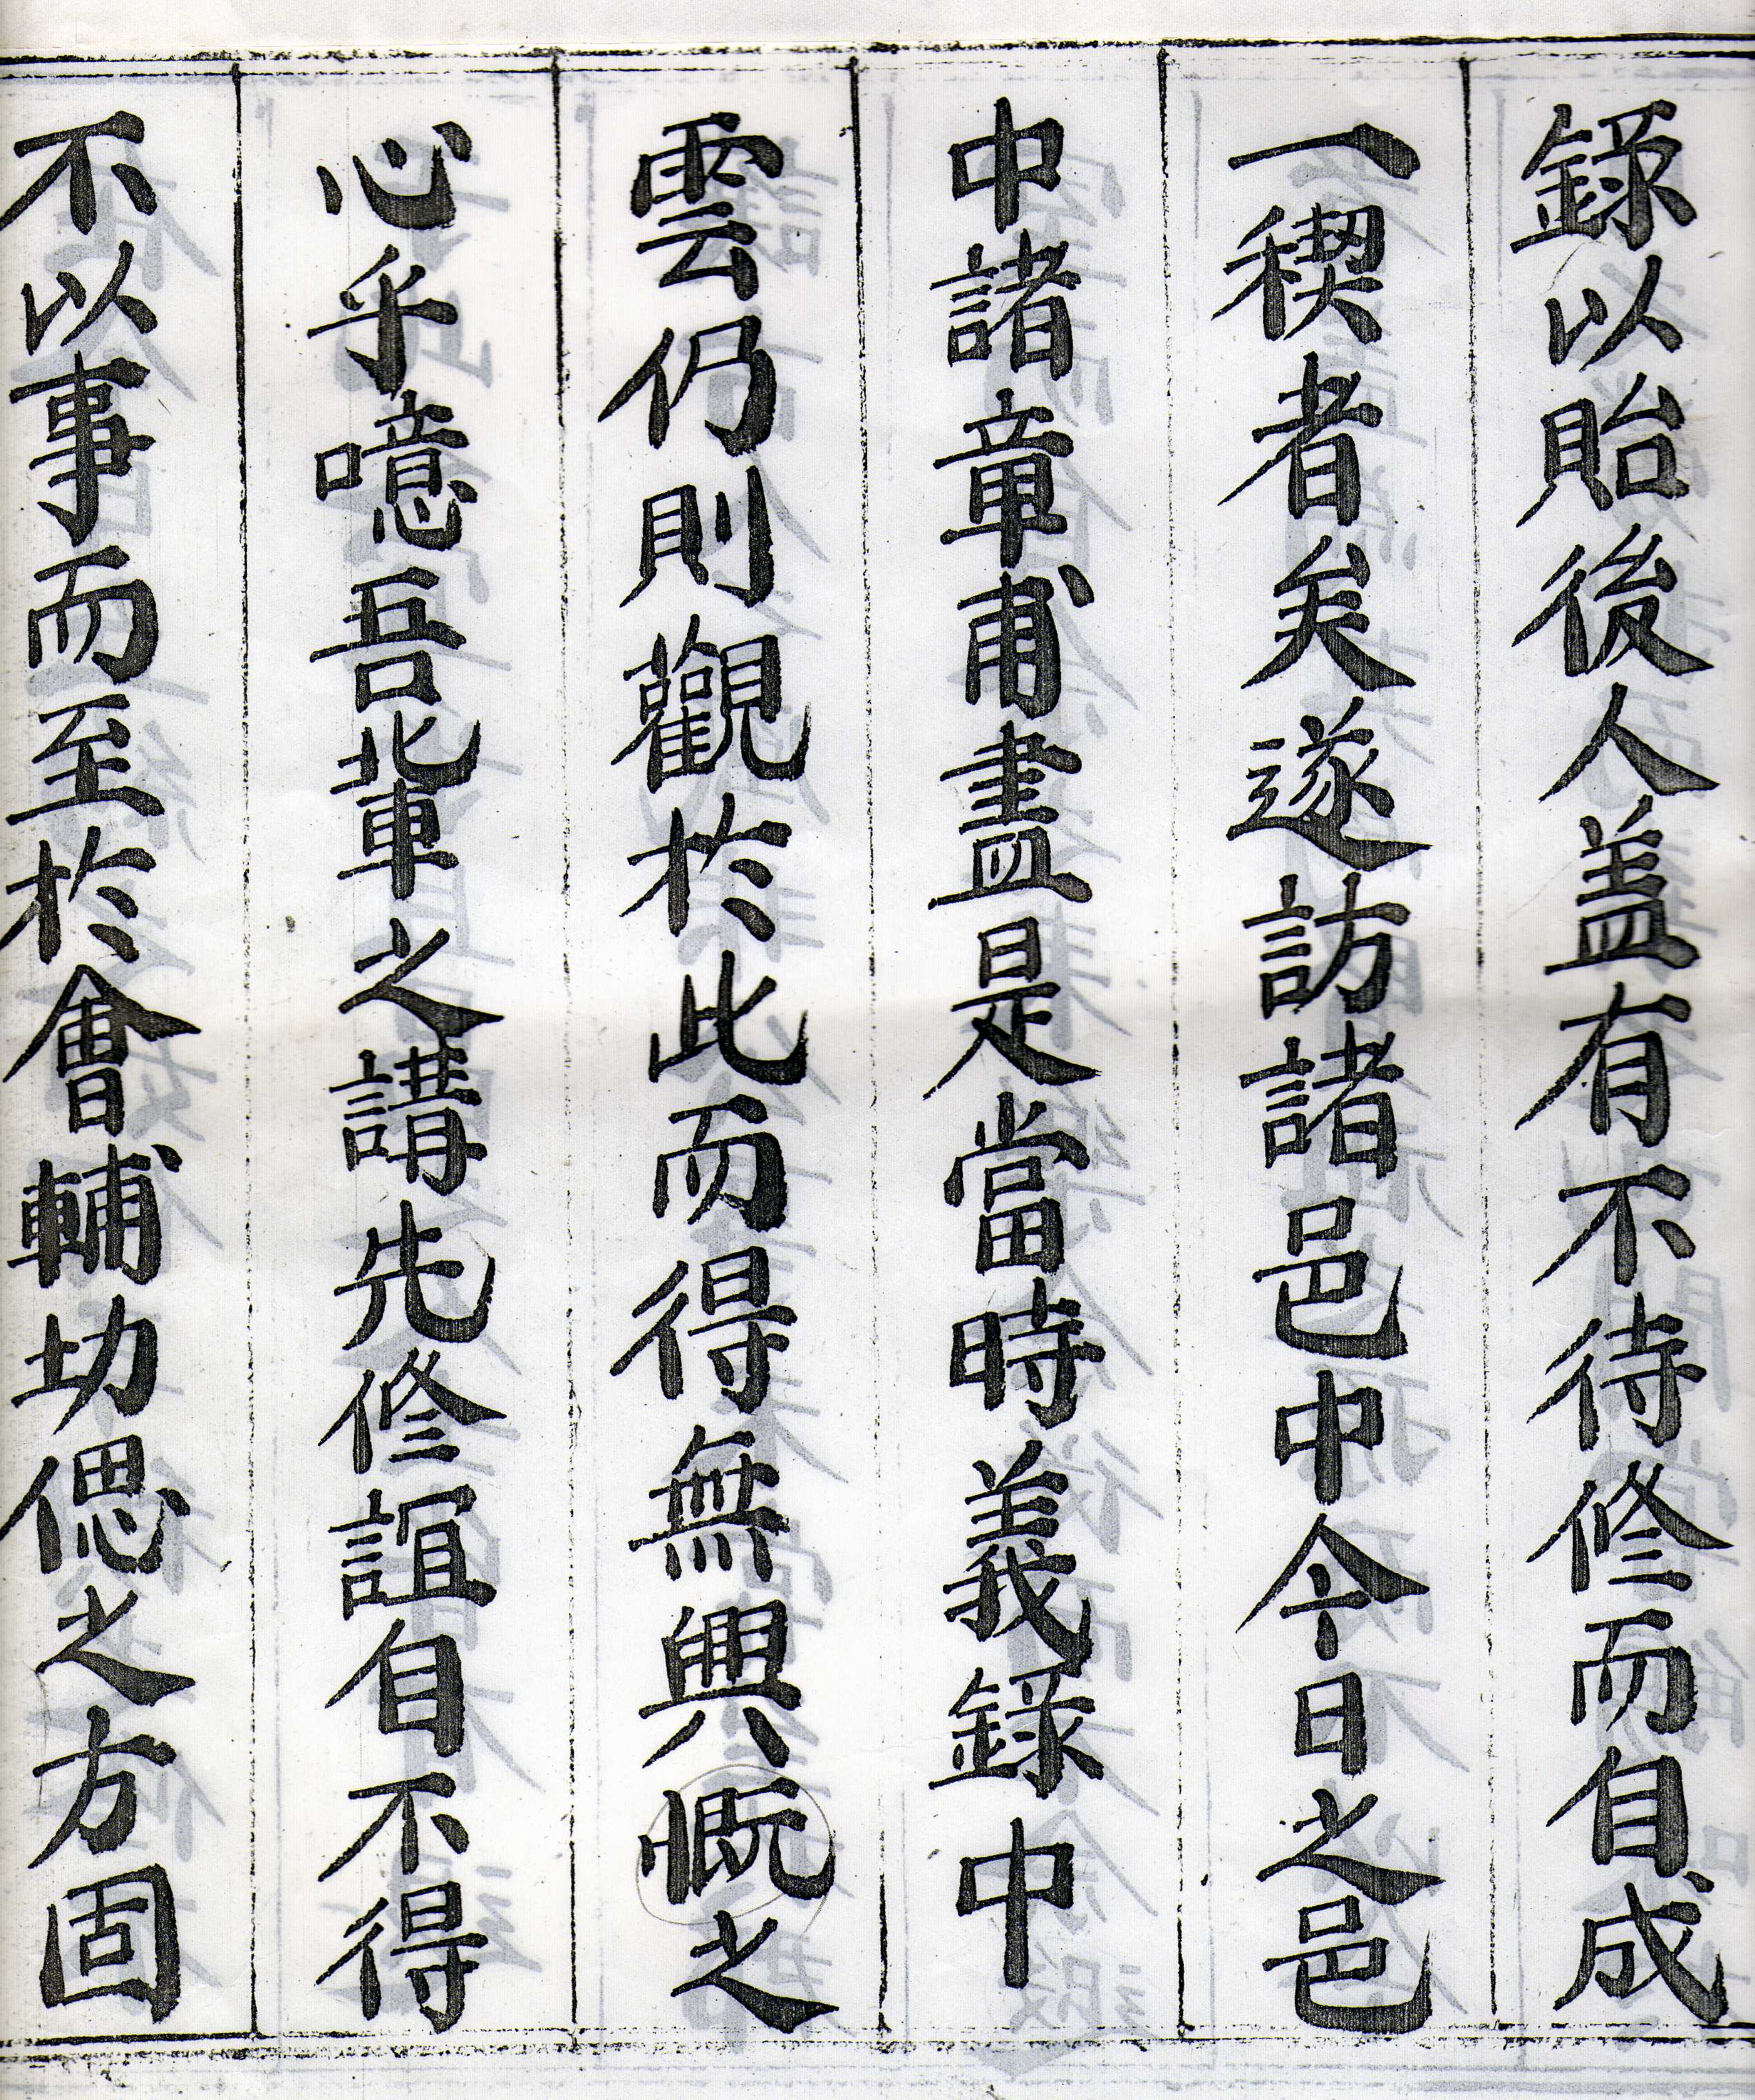 錄以貽後人盖有不待修而自成
一稧者矣遂訪諸邑中今日之邑
中諸章甫盡是當時義録中
雲仍則觀於此而得無興慨之
心乎噫吾輩之講先修誼自不得
不以事而至於會輔切偲之方固